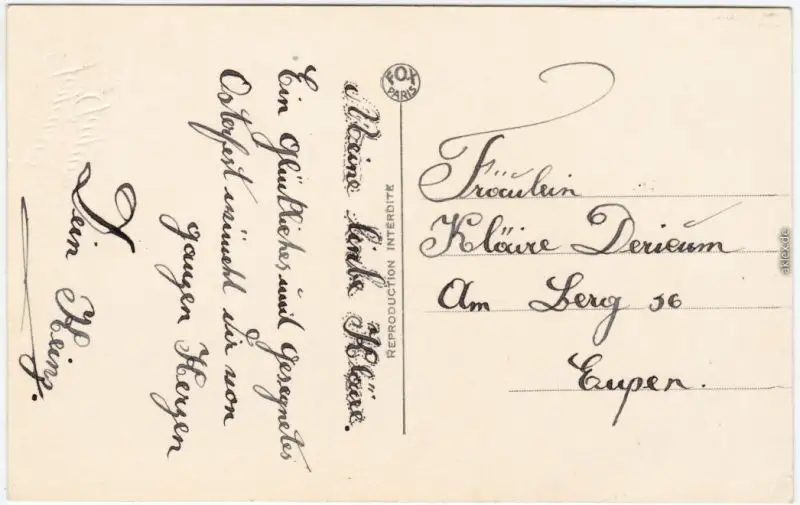 Meine liebe Kläire.
Ein glückliches und gesegnetes
Osterfest wünscht dir von
ganzen Herzen
Dein Heinz.
FOX
PARIS
REPRODUCTION INTERDITE
Fräulein
Kläire Dericum
Am Berg 36
Eupen.